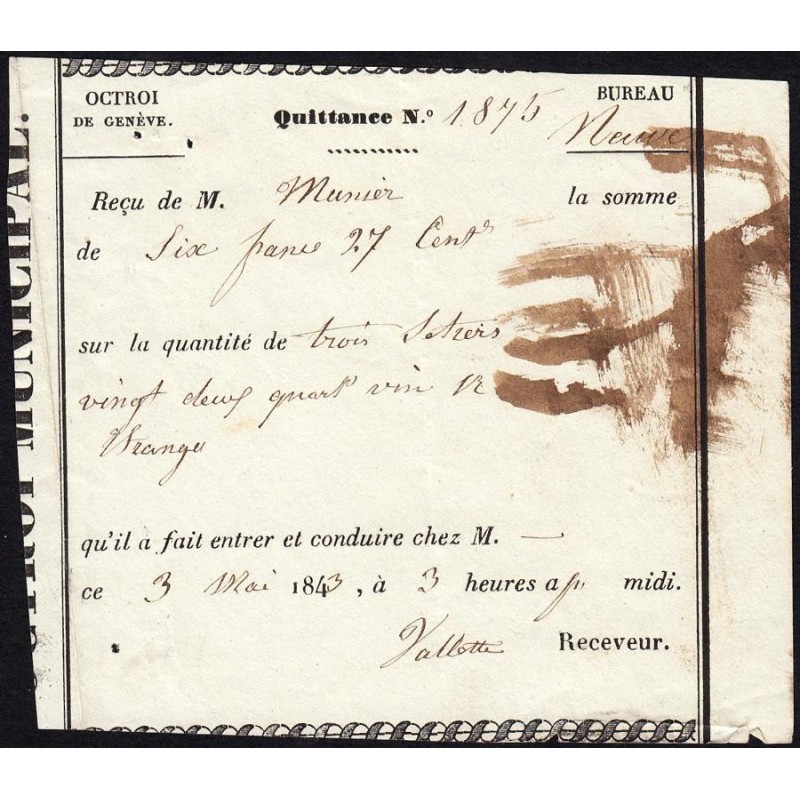 OCTROI MUNICIPAL.
OCTROI
DE GENÈVE.
Quittance N.º 1875
BUREAU
Neuve
Reçu de M. Munier la somme
de Six francs 27 Cents
sur la quantité de trois Setiers
vingt deux quart vin
qu'il a fait entrer et conduire chez M. —
ce 3 Mai 1843, à 3 heures ap midi.
Vallotte Receveur.